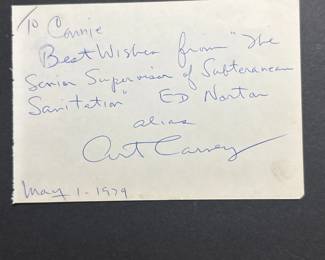 To Connie
Best Wishes from "The
Senior Supervisor of Subteranean
Sanitation" ED Norton
alias
Art Carney
May 1 - 1979